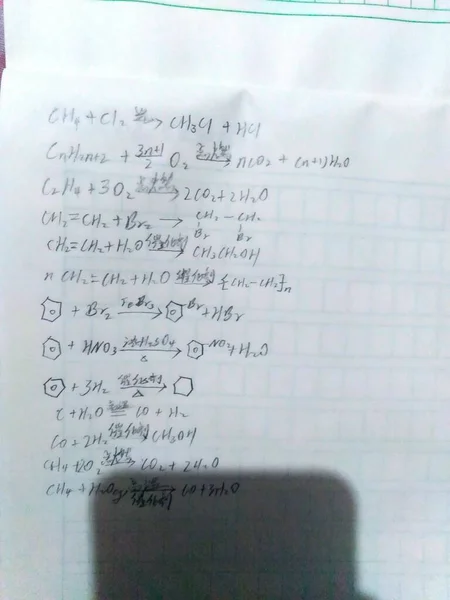 CH₄ + Cl₂ 光→ CH₃Cl + HCl
CnH2n+2 + 3n+1/2 O₂ 点燃→ nCO₂ + (n+1)H₂O
C₂H₄ + 3O₂ 点燃→ 2CO₂ + 2H₂O
CH₂=CH₂ + Br₂ → CH₂-CH₂
Br Br
CH₂=CH₂ + H₂O 催化剂→ CH₃CH₂OH
n CH₂=CH₂ + H₂O 催化剂→ [CH₂-CH₂]n
+ Br₂ FeBr₃→ Br + HBr
+ HNO₃ 浓H₂SO₄ △→ NO₂ + H₂O
+ 3H₂ 催化剂 △→
C + H₂O 高温= CO + H₂
CO + 2H₂ 催化剂→ CH₃OH
CH₄ + 2O₂ 点燃→ CO₂ + 2H₂O
CH₄ + H₂O 高温 催化剂→ CO + 3H₂O